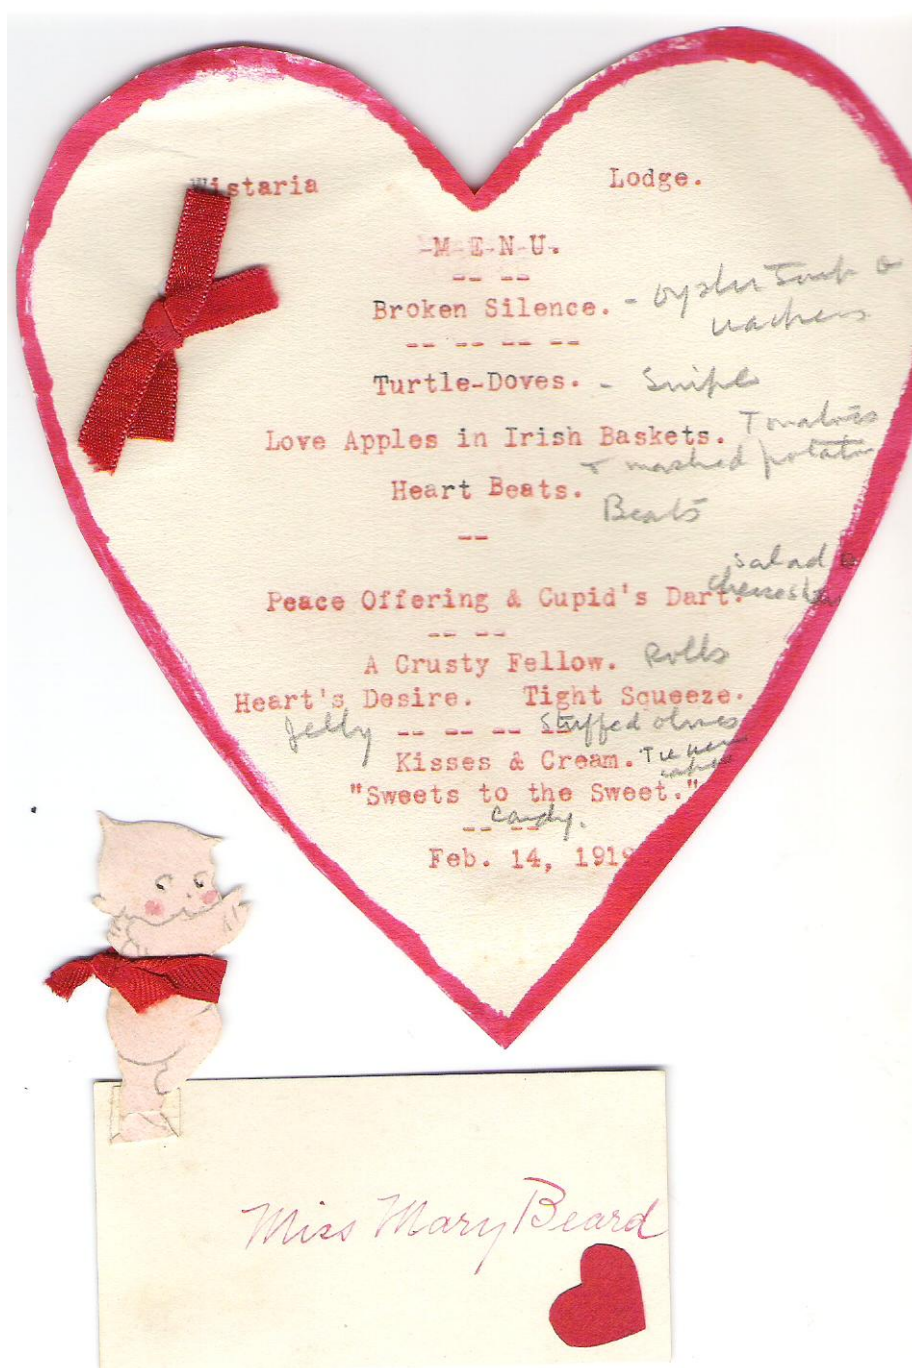 Wistaria Lodge.
-M-E-N-U-.
-- --
Broken Silence. - oyster soup & crackers
-- -- -- --
Turtle-Doves. - Snipe
Love Apples in Irish Baskets. Tomatoes
& mashed potato
Heart Beats. Beats
--
salad &
Peace Offering & Cupid's Dart. cheese straw
-- --
A Crusty Fellow. Rolls
Heart's Desire. Tight Squeeze.
Jelly -- -- -- -- Stuffed olives
Kisses & Cream.
"Sweets to the Sweet."
candy.
-- --
Feb. 14, 1919
Miss Mary Beard